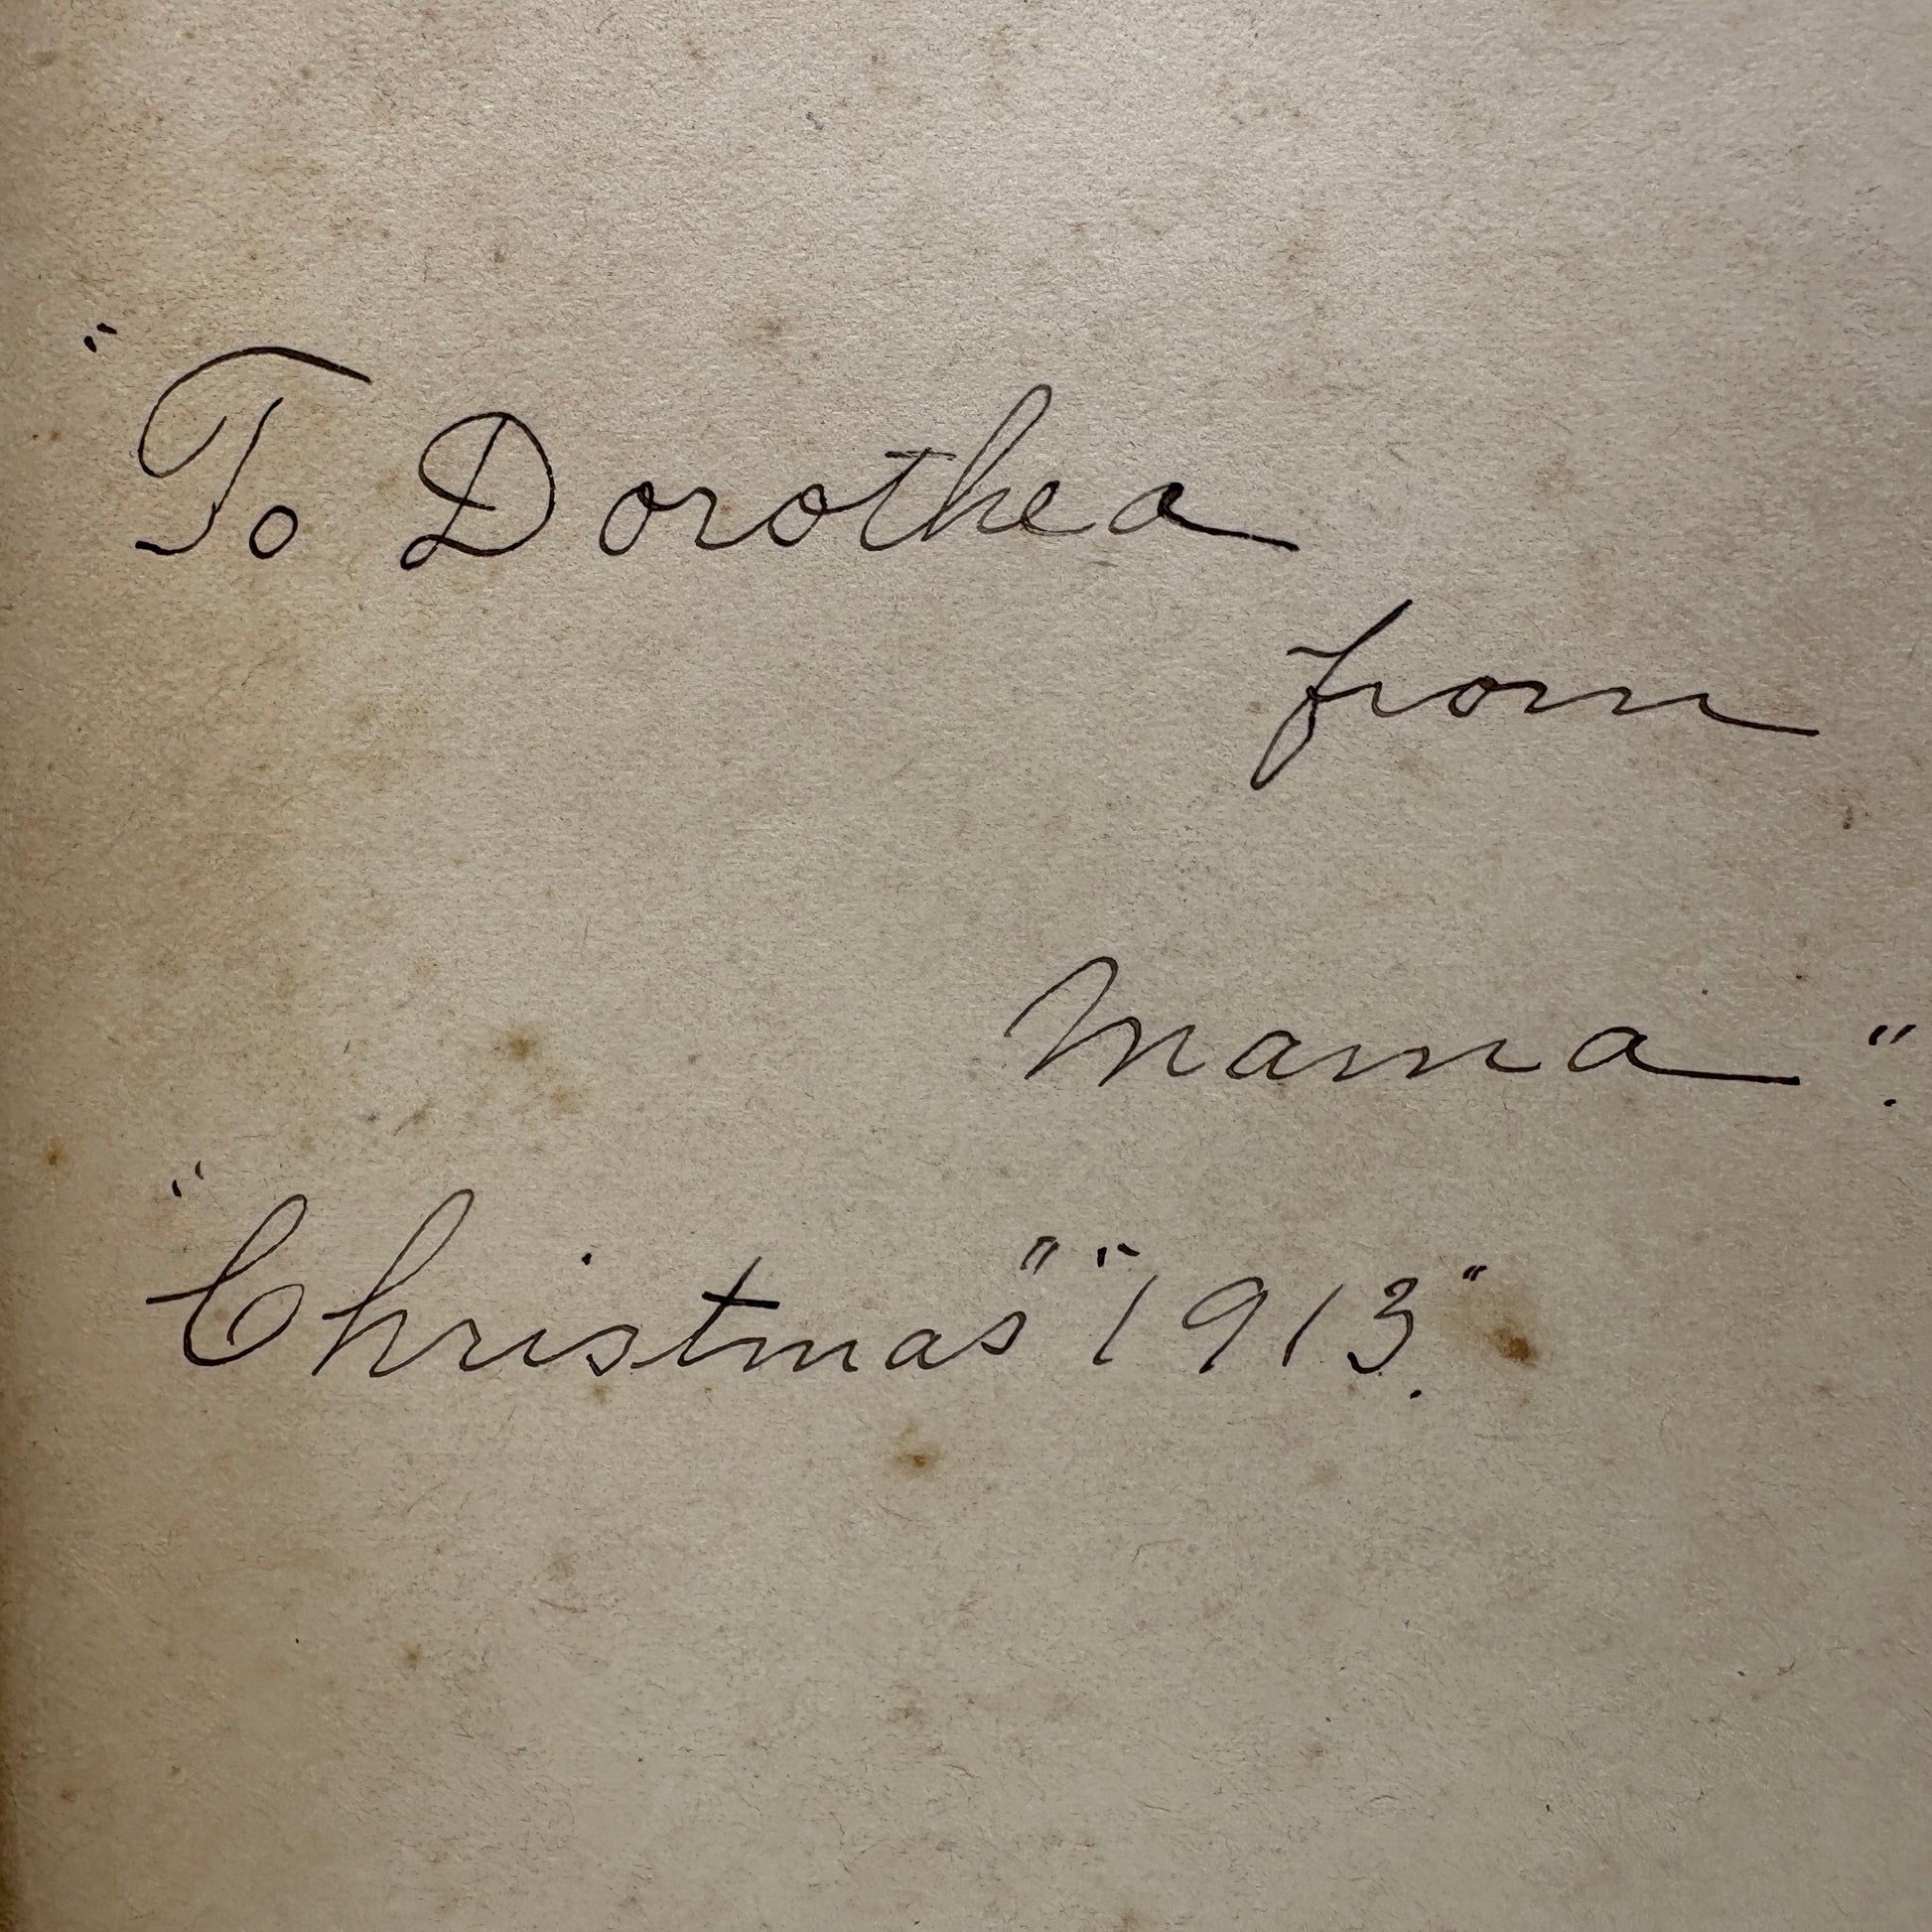 "To Dorothea
from
Mama".
"Christmas" "1913."